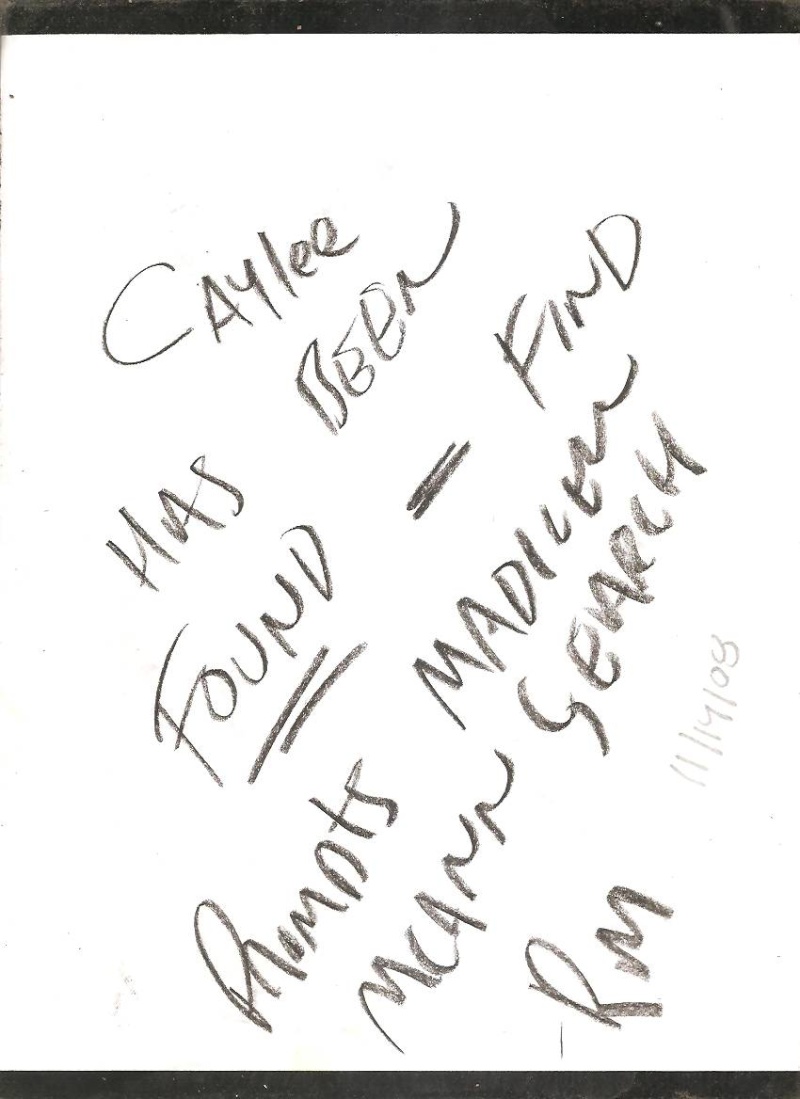 CAYlee
HAS BEEN
FOUND = FIND
PROMPTS MADILEN
MCANN SEARCH
RM
11/14/08